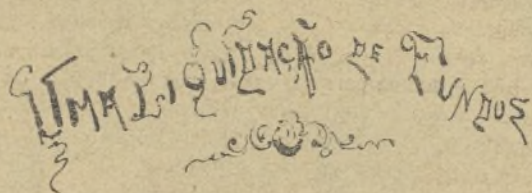 UMA LIQUIDAÇÃO DE FUNDOS